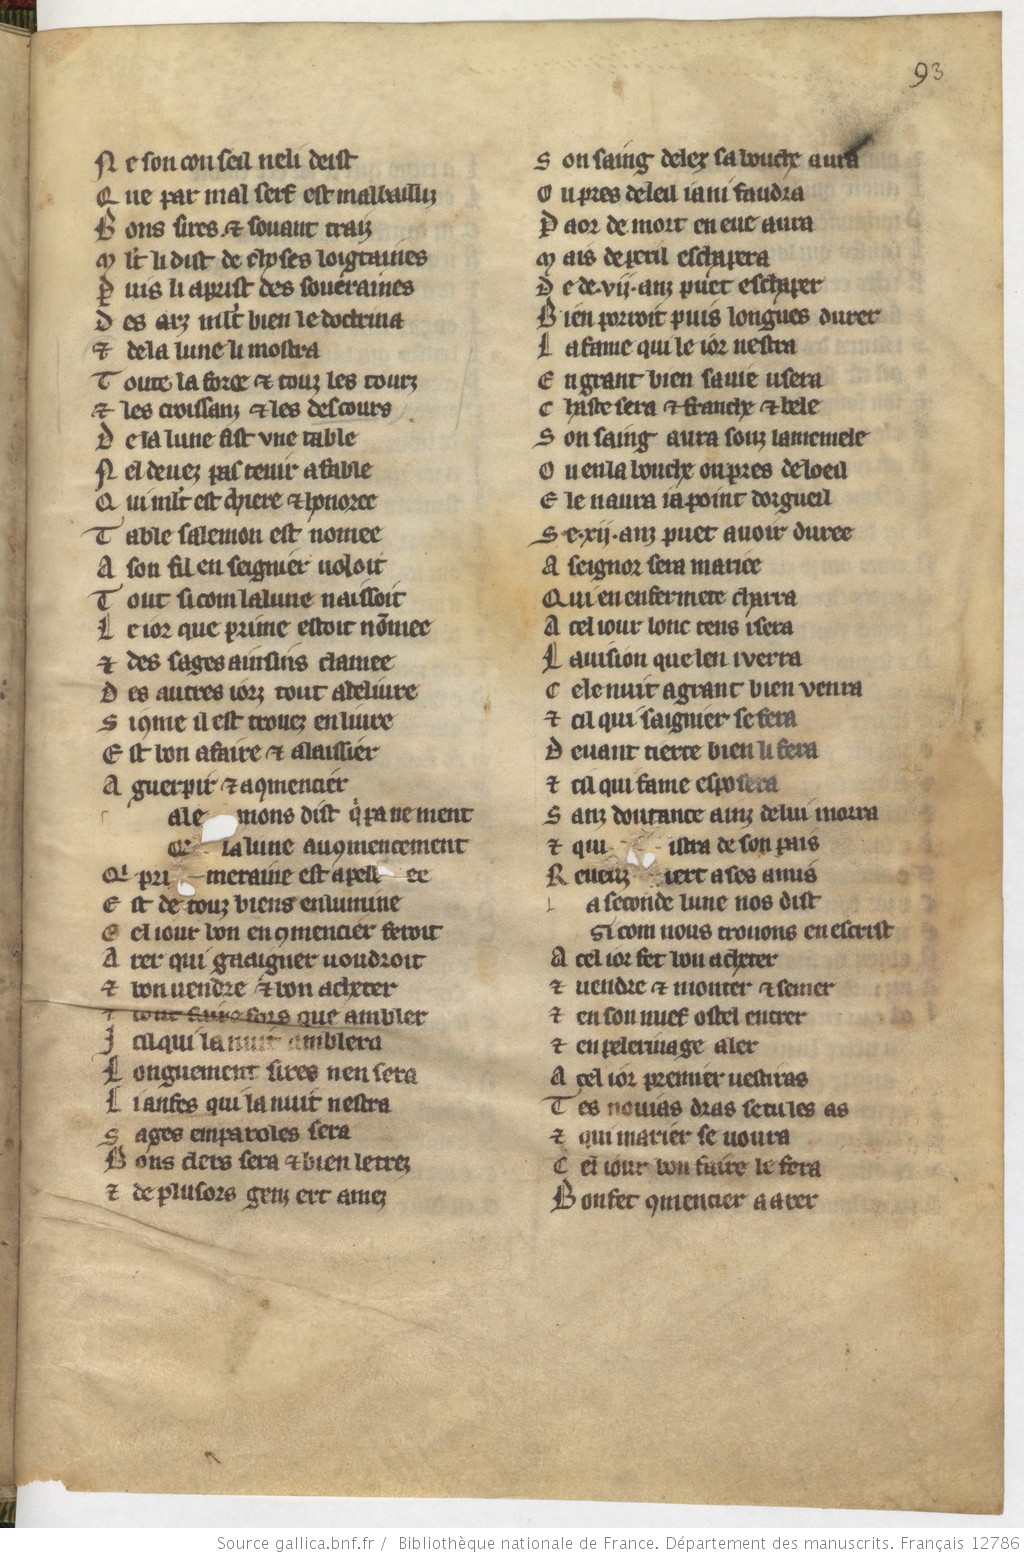 93
N e son con seil ne li deist
Q ue par mal serf est malbailliz
B ons sires & souant traiz
M lt li dist de choses loigtaines
P uis li aprist des soueraines
D es arz mlt bien le doctrina
& de la lune li mostra
T oute la force & touz les tourz
& les croissanz & les descours
D e la lune fist vne table
N el deuez pas tenir a fable
Q ui mlt est chiere & honoree
T able salemon est nomee
A son fil en seignier uoloit
T out si com la lune naissoit
L e ior que prime estoit nōmee
& des sages ainsins clamee
D es autres iorz tout a deliure
S i ꝯme il est trouez en liure
E st bon a faire & a laissier
A guerpir & a ꝯmencier
ale mons dist q̄ pa ne ment
Q la lune auꝯmencement
Q pri meraine est apell ee
E st de touz biens enlumine
C el iour bon en ꝯmencier feroit
A rer qui gaaignier uoudroit
& bon uendre & bon acheter
& tout faire fors que ambler
I cil qui la nuit amblera
L onguement sires nen sera
L i anfes qui la nuit nestra
S ages emparoles sera
B ons clers sera & bien letrez
& de plusors genz ert amez
S on saing delez sa bouche aura
O u pres de leil ia ni faudra
P aor de mort en eue aura
M ais de peril eschapera
D e de .vij. anz puet eschaper
B ien porroit puis longues durer
L a fame qui le ior nestra
E n grant bien sauie usera
C haste sera & franche & bele
S on saing aura souz la memele
O u en la bouche ou pres de loeil
E le naura ia point dorgueil
S e .xij. anz puet auoir duree
A seignor sera mariee
Q ui en enfermete charra
A cel iour lonc tens i sera
L auision que len i verra
C ele nuit a grant bien venra
& cil qui saignier se fera
D euant tierce bien li fera
& cil qui fame esposera
S anz doutance ainz de lui morra
& qui istra de son pais
R euenz iert a ses amis
L a seconde lune nos dist
Si com nous trouons en escrist
A cel ior fet bon acheter
& uendre & monter & semer
& en son nuef ostel entrer
& en pelerinage aler
A cel ior premier uestiras
T es nouias dras se tu les as
& qui marier se uoura
C el iour bon faire le fera
B on fet ꝯmencier a arer
Source gallica.bnf.fr / Bibliothèque nationale de France. Département des manuscrits. Français 12786